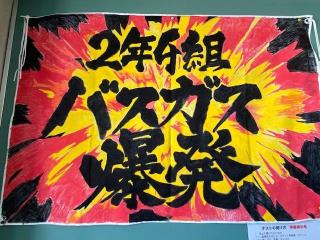 2年5組
バスガス
爆発